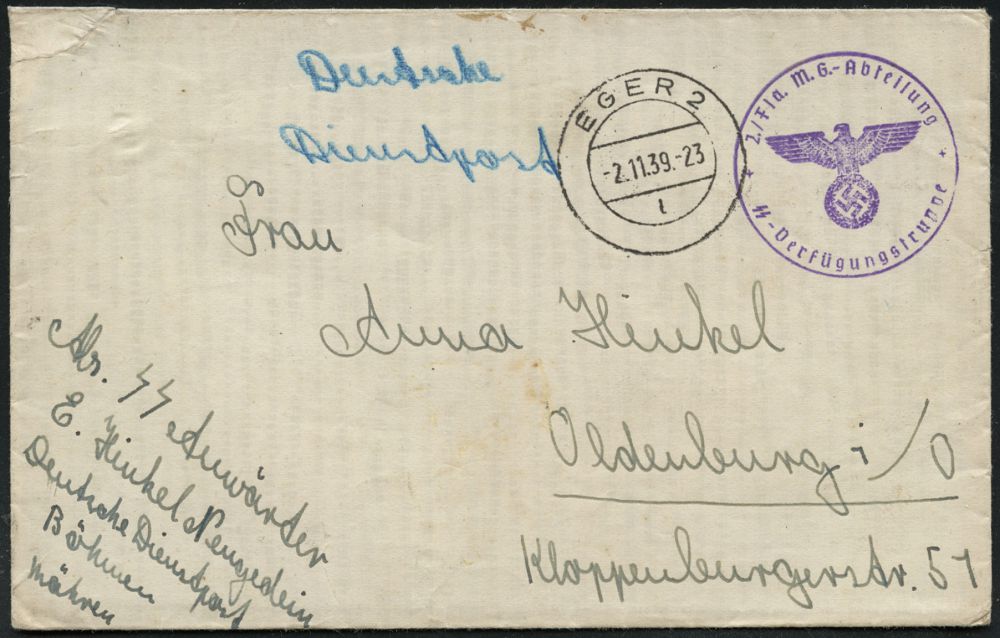 Deutsche
Dienstpost
EGER 2
-2.11.39.-23
2./Fla. M.G.-Abteilung
SS-Verfügungstruppe
Frau
Anna Hinkel
Oldenburg i/O
Kloppenburgerstr. 57
Abs. SS Anwärter
E. Hinkel Neugedein
Deutsche Dienstpost
Böhmen
Mähren